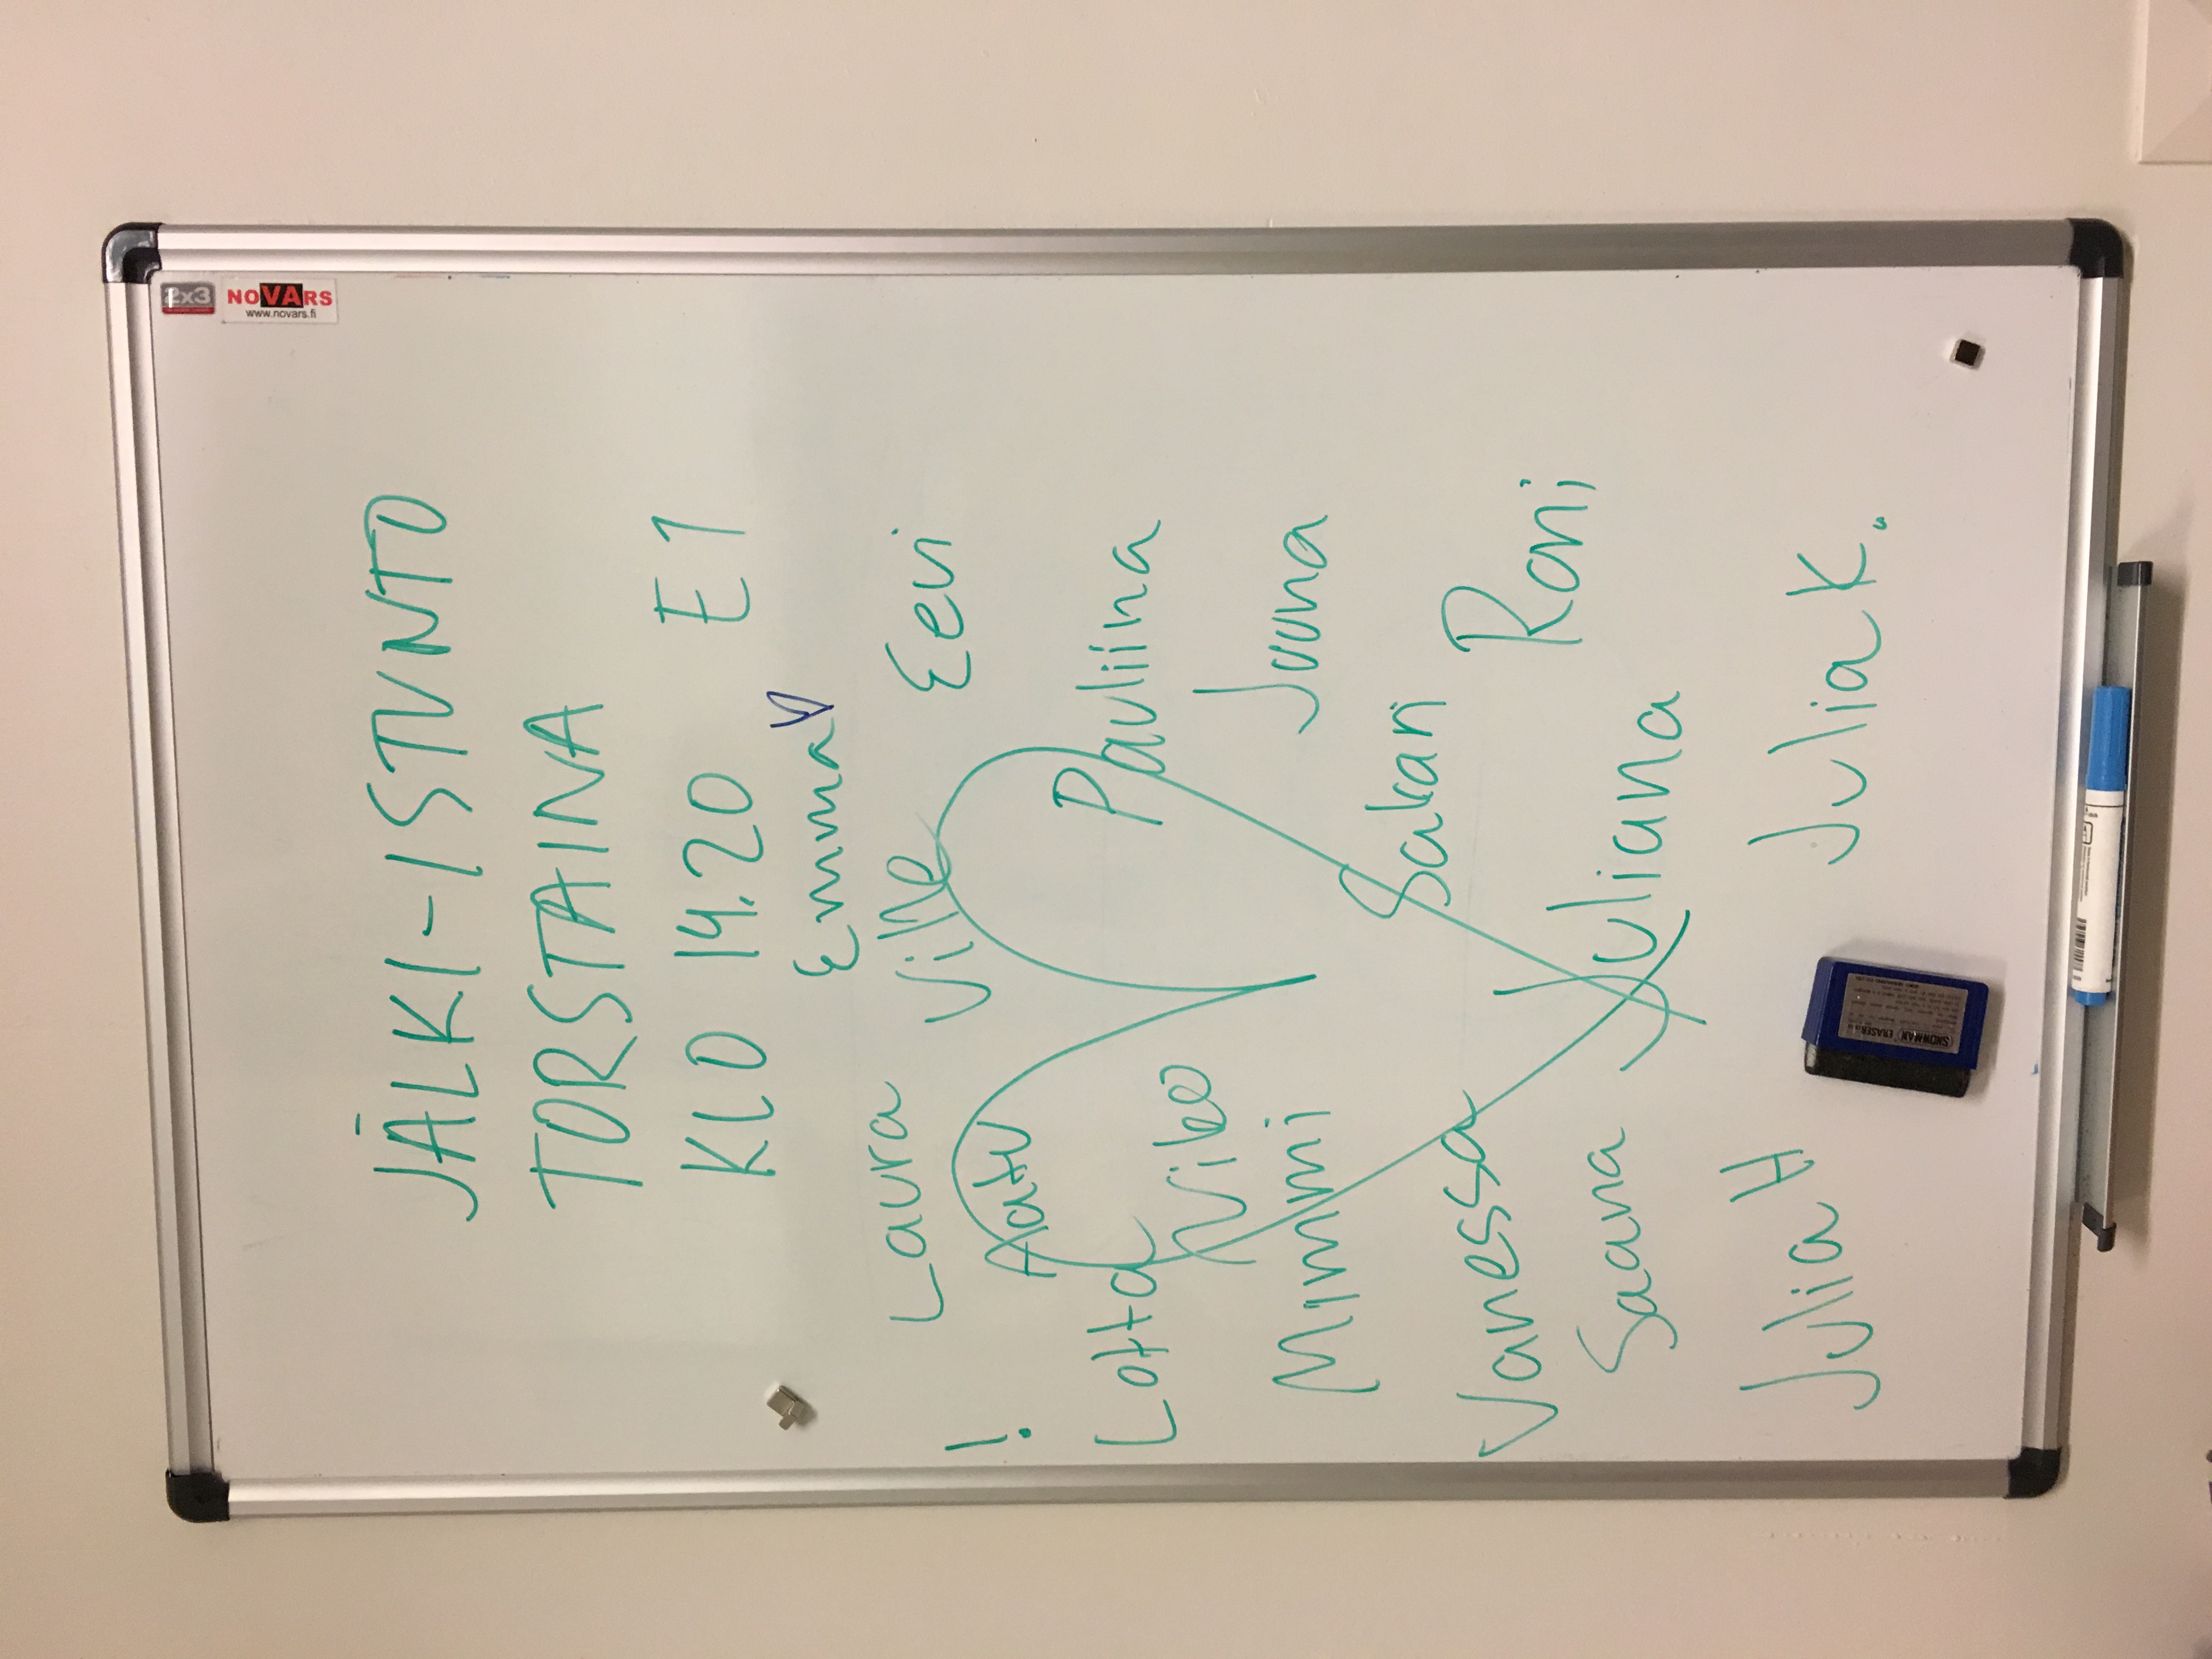 2x3
NOVARS
www.novars.fi
JÄLKI-ISTUNTO
TORSTAINA
KLO 14.20 E1
Emma
Laura Ville Eevi
! Aatu
Lotta Niko Pauliina
Mimmi Joona
Vanessa Sakari Roni
Saana Juliana
Julia H Julia K.
SNOWMAN ERASER